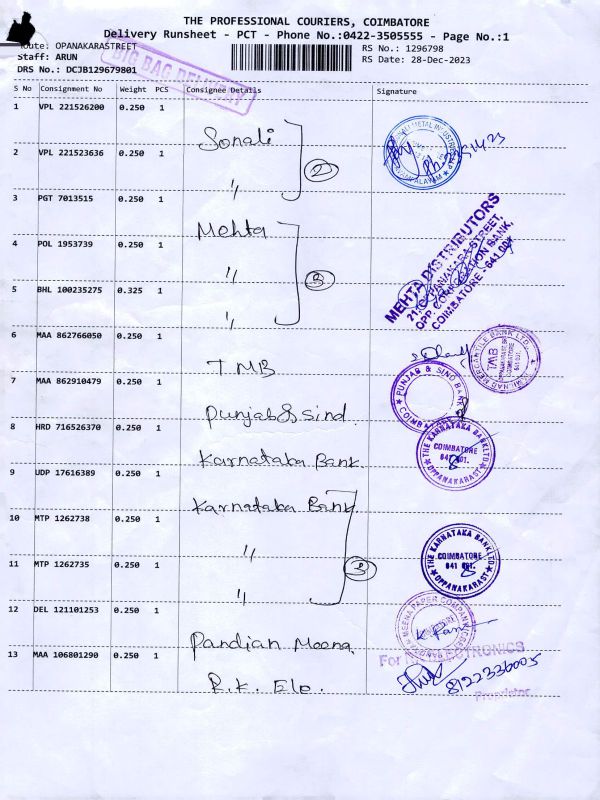 THE PROFESSIONAL COURIERS, COIMBATORE
Delivery Runsheet - PCT - Phone No.:0422-3505555 - Page No.:1
Route: OPANAKARASTREET
Staff: ARUN
DRS No.: DCJB129679801
BIG BAG DELIVERY
RS No.: 1296798
RS Date: 28-Dec-2023
S No Consignment No Weight PCS Consignee Details Signature
1 VPL 221526200 0.250 1
Sonali
2 VPL 221523636 0.250 1
" 2
3 PGT 7013515 0.250 1
Mehta
MEHTA DISTRIBUTORS
OPP. CORPORATION BANK,
COIMBATORE - 641 001
4 POL 1953739 0.250 1
" 3
5 BHL 100235275 0.325 1
"
6 MAA 862766050 0.250 1
T.M.B
TMB
7 MAA 862910479 0.250 1
Punjab & Sind.
PUNJAB & SIND BANK
8 HRD 716526370 0.250 1
Karnataba Bank
THE KARNATAKA BANK LTD
COIMBATORE
641 001.
OPPANAKARAST
9 UDP 17616389 0.250 1
Karnataba Bank
10 MTP 1262738 0.250 1
"
THE KARNATAKA BANK LTD
COIMBATORE
641 001.
OPPANAKARAST
11 MTP 1262735 0.250 1
" 3
12 DEL 121101253 0.250 1
Pandian Meena.
MEENA PAPER COMPANY
13 MAA 106801290 0.250 1
R.K. Ele.
For R.K. ELECTRONICS
8122336005
Proprietor